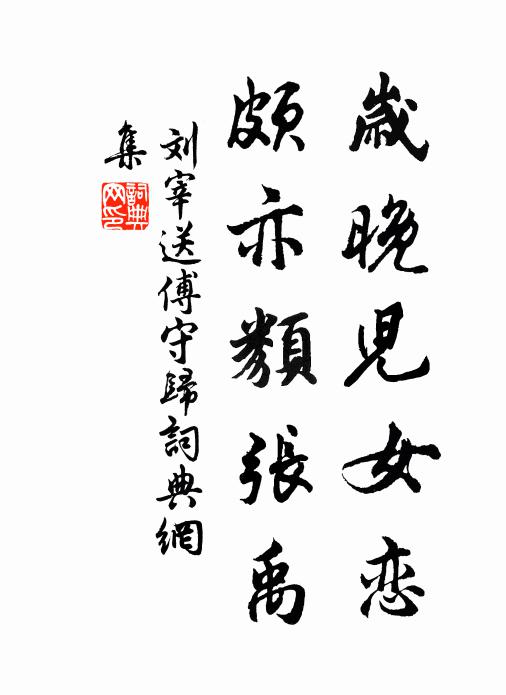 歲晚児女恋
頗亦類張禹
刘宰送傅守歸詞典網
集
詞典
网印